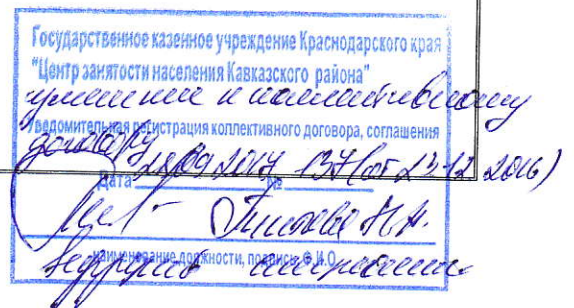 Государственное казенное учреждение Краснодарского края
"Центр занятости населения Кавказского района"
к коллективному
Уведомительная регистрация коллективного договора, соглашения
договору
Дата 28.09.2017 № 137 (от 23.12.2016)
Н.А.
наименование должности, подпись, Ф.И.О.